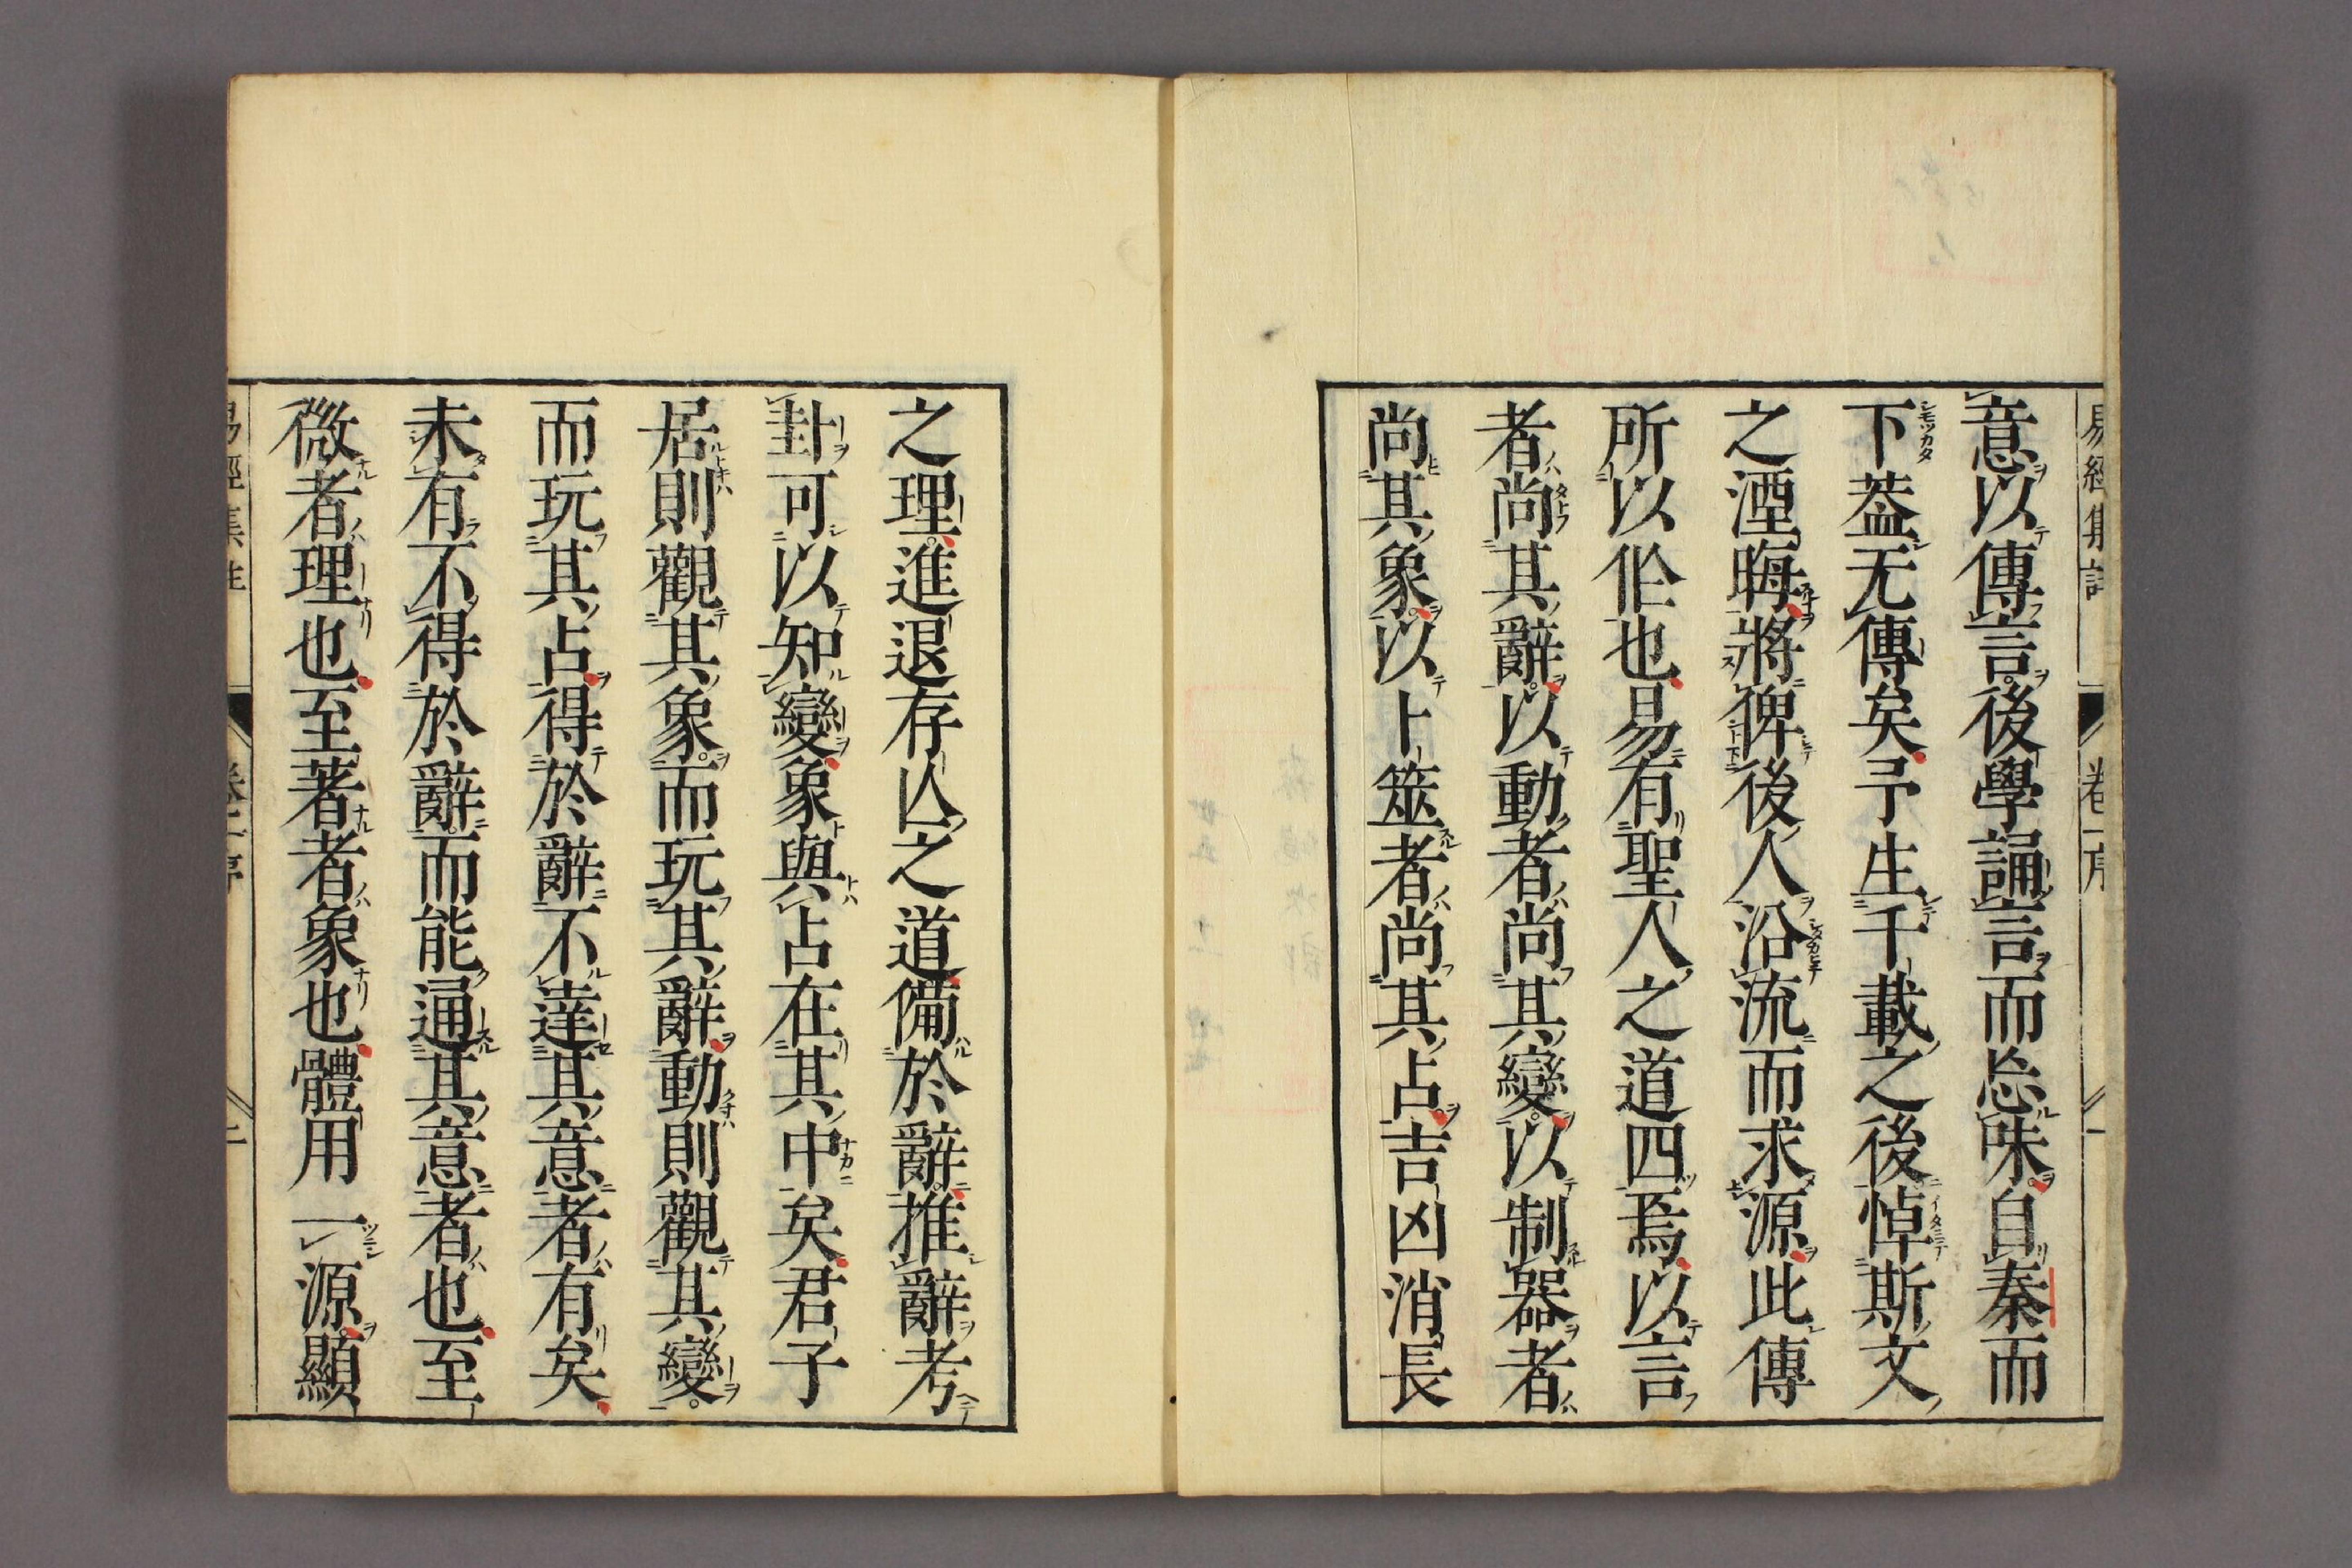 易經集註 卷一序 一
意以傳言後學誦言而忘味自秦而
下葢无傳矣予生千載之後悼斯文
之湮晦將俾後人沿流而求源此傳
所以作也易有聖人之道四焉以言
者尚其辭以動者尚其變以制器者
尚其象以卜筮者尚其占吉凶消長
之理進退存亾之道備於辭推辭考
卦可以知變象與占在其中矣君子
居則觀其象而玩其辭動則觀其變
而玩其占得於辭不達其意者有矣
未有不得於辭而能通其意者也至
微者理也至著者象也體用一源顯